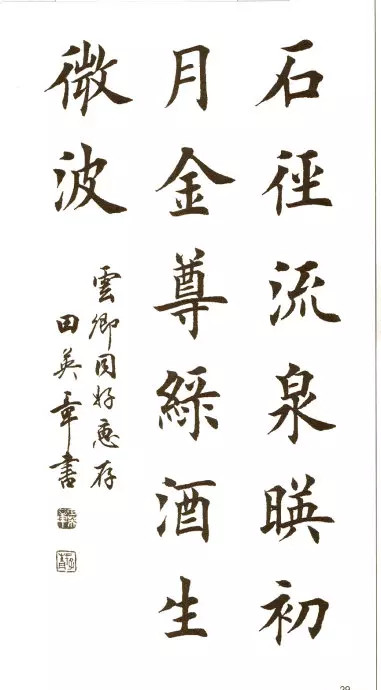 石徑流泉暎初
月金尊綠酒生
微波
雲卿同好惠存
田英章書